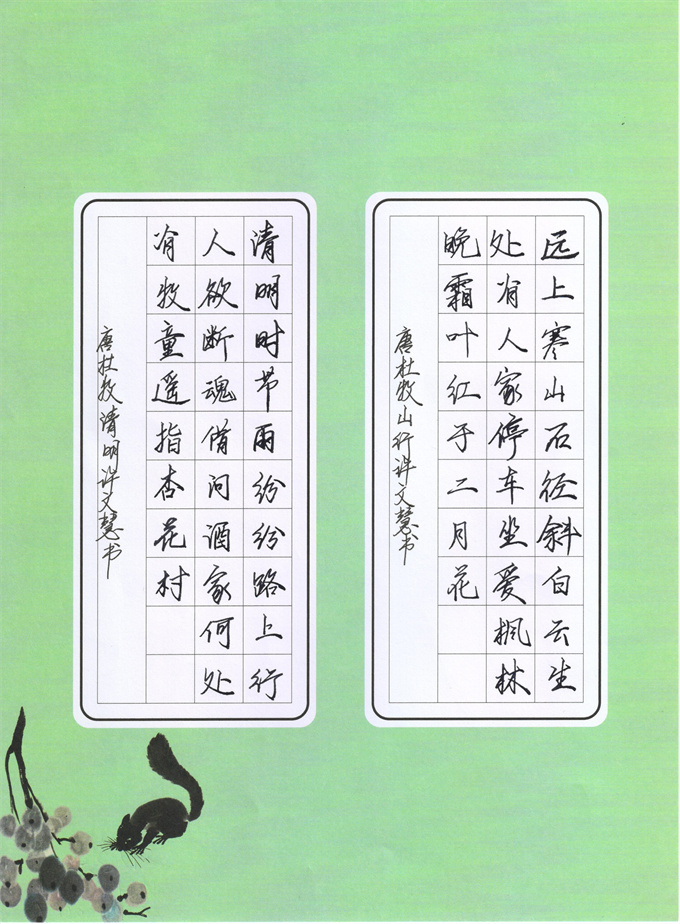 远上寒山石径斜白云生
处有人家停车坐爱枫林
晚霜叶红于二月花
唐杜牧山行许文慧书
清明时节雨纷纷路上行
人欲断魂借问酒家何处
有牧童遥指杏花村
唐杜牧清明许文慧书